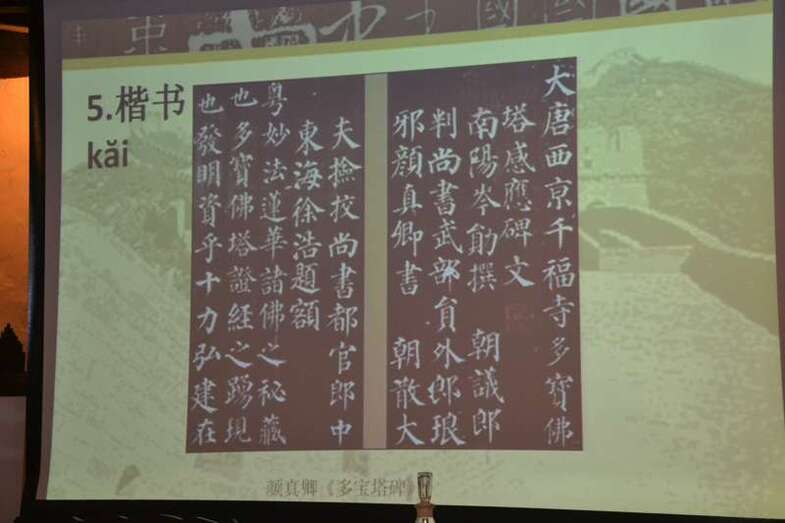 5.楷书
kǎi
大唐西京千福寺多寶佛
塔感應碑文
南陽岑勛撰 朝議郎
判尚書武部員外郎琅
邪顏真卿書 朝散大
夫撿挍尚書都官郎中
東海徐浩題額
粵妙法蓮華諸佛之秘藏
也多寶佛塔證經之踴現
也發明資乎十力弘建在
颜真卿《多宝塔碑》